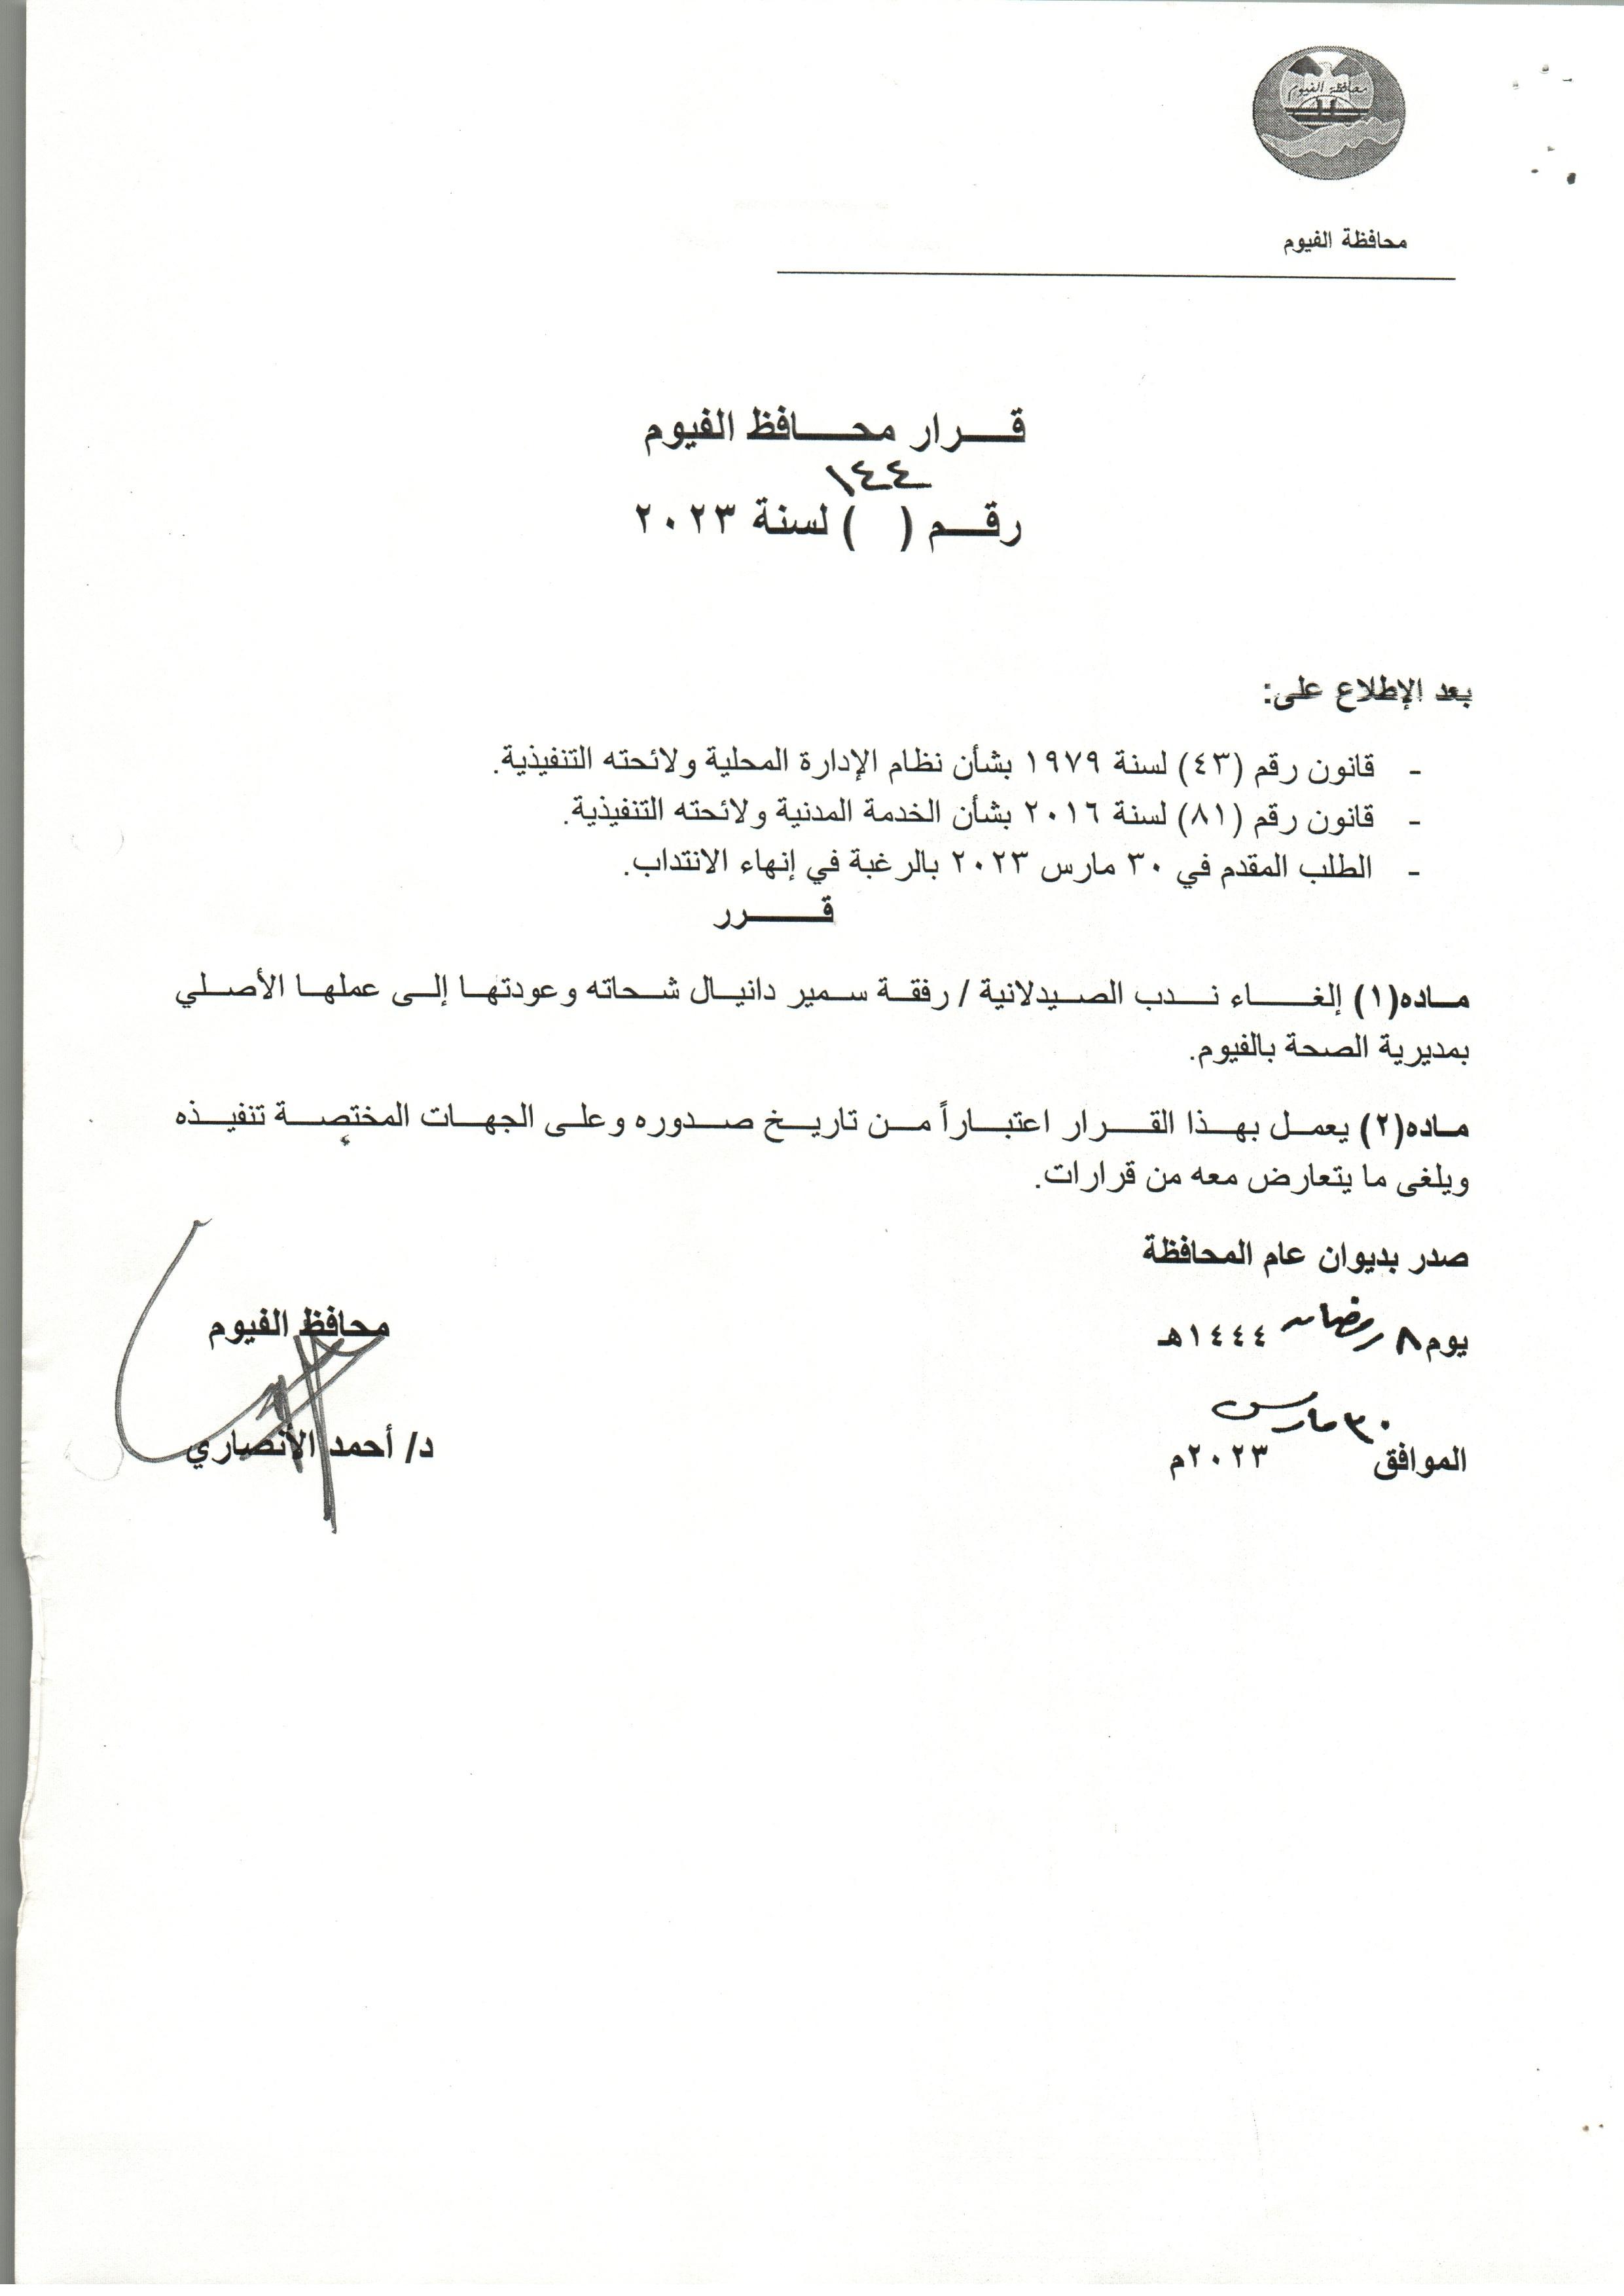 محافظة الفيوم
محافظة الفيوم
قرار محافظ الفيوم
١٤٤
رقم (   ) لسنة ٢٠٢٣
بعد الإطلاع على:
- قانون رقم (٤٣) لسنة ١٩٧٩ بشأن نظام الإدارة المحلية ولائحته التنفيذية.
- قانون رقم (٨١) لسنة ٢٠١٦ بشأن الخدمة المدنية ولائحته التنفيذية.
- الطلب المقدم في ٣٠ مارس ٢٠٢٣ بالرغبة في إنهاء الانتداب.
قرر
ماده(١) إلغاء ندب الصيدلانية / رفقة سمير دانيال شحاته وعودتها إلى عملها الأصلي
بمديرية الصحة بالفيوم.
ماده(٢) يعمل بهذا القرار اعتباراً من تاريخ صدوره وعلى الجهات المختصة تنفيذه
ويلغى ما يتعارض معه من قرارات.
صدر بديوان عام المحافظة
يوم ٨ رمضان ١٤٤٤هـ
محافظ الفيوم
٣٠ مارس
الموافق ٢٠٢٣م
د/ أحمد الأنصاري